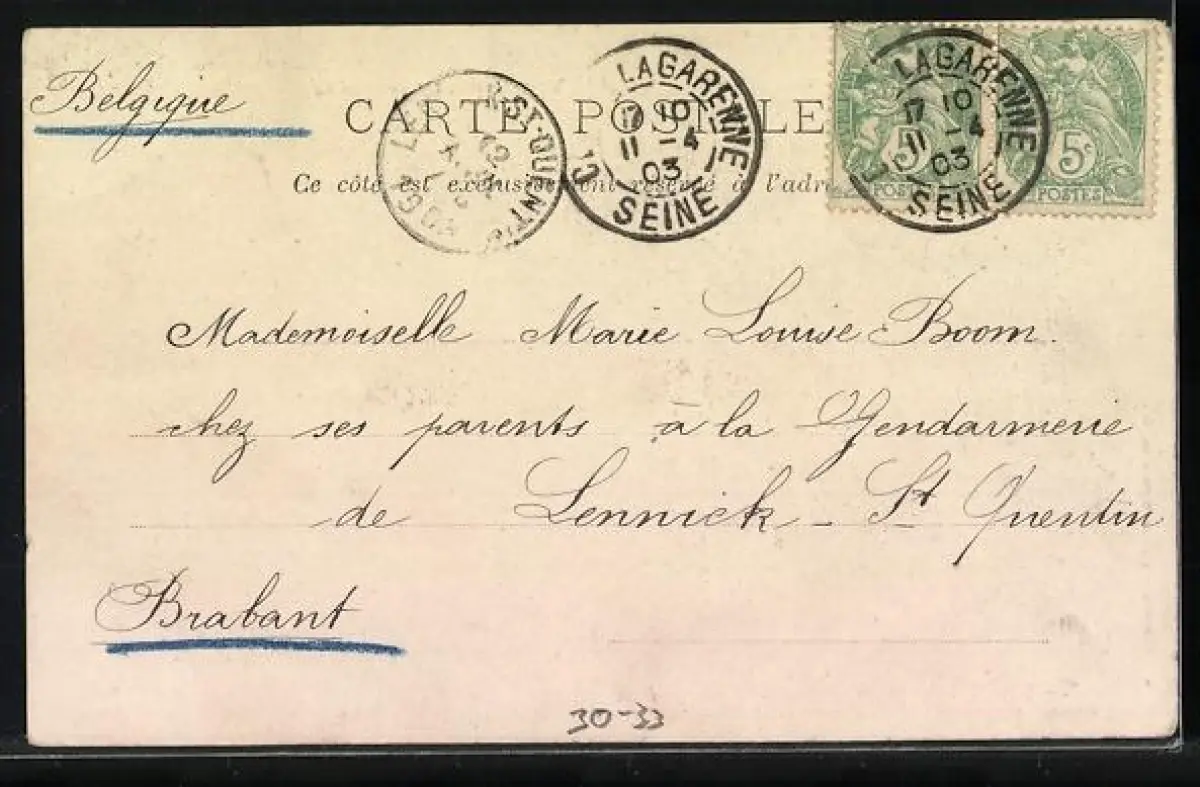 Belgique
CARTE POSTALE
Ce côté est exclusivement réservé à l'adre
ST-QUENT
LAGARENNE
17 10
11 -4
03
SEINE
LAGARENNE
17 10
11 -4
03
SEINE
5c
POSTES
5c
POSTES
Mademoiselle Marie Louise Boom.
chez ses parents à la Gendarmerie
de Lennick - St Quentin
Brabant
30-33